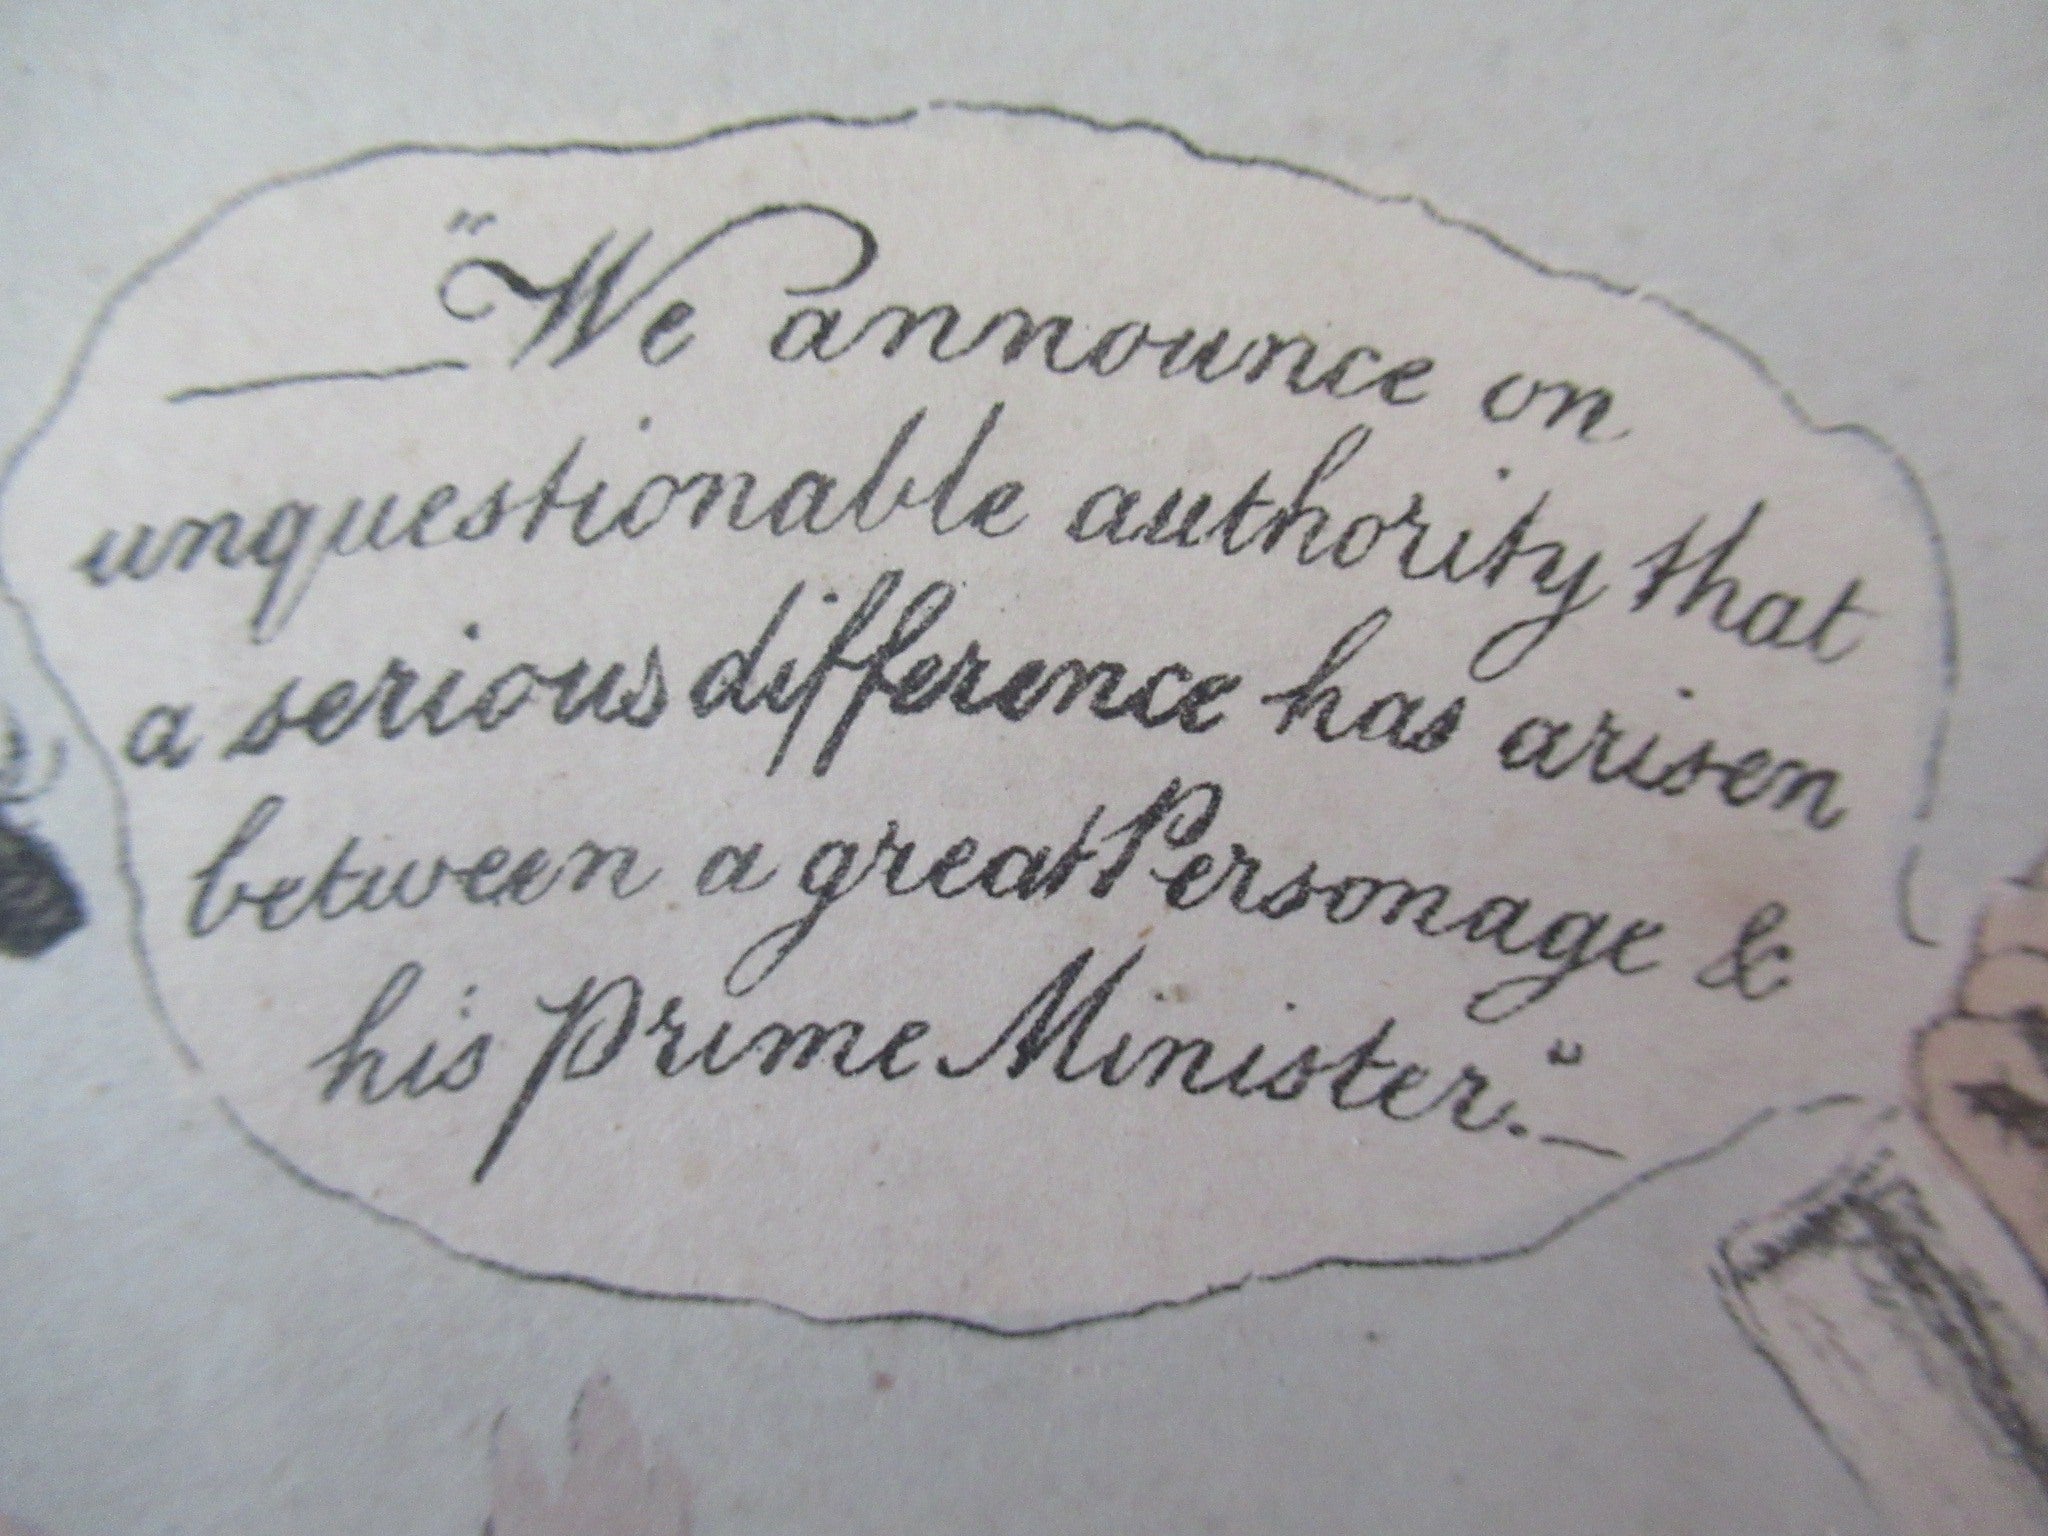 "We announce on
unquestionable authority that
a serious difference has arisen
between a great Personage &
his Prime Minister."—